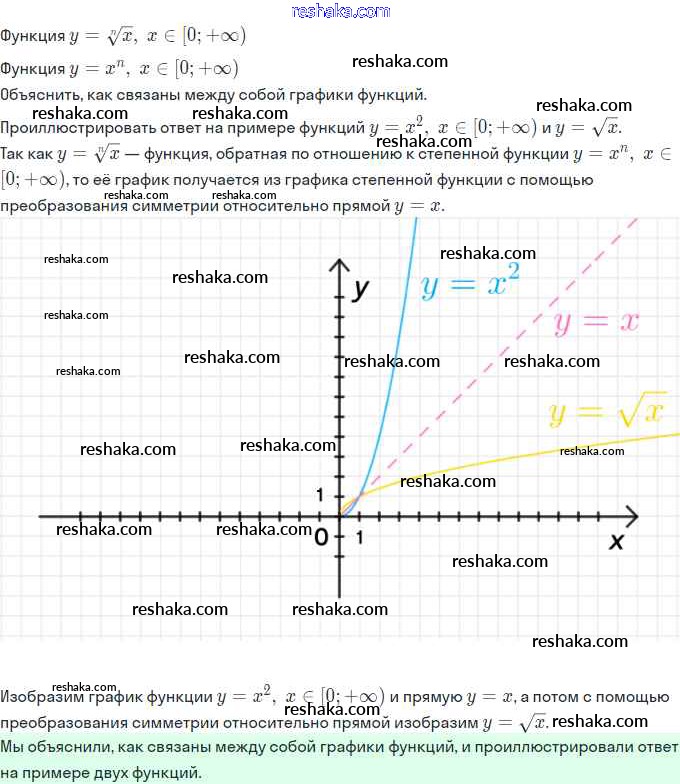 reshaka.com
Функция y = ⁿ√x, x ∈ [0; +∞)
reshaka.com
Функция y = xⁿ, x ∈ [0; +∞)
Объяснить, как связаны между собой графики функций.
reshaka.com reshaka.com reshaka.com
Проиллюстрировать ответ на примере функций y = x², x ∈ [0; +∞) и y = √x.
reshaka.com
Так как y = ⁿ√x — функция, обратная по отношению к степенной функции y = xⁿ, x ∈
[0; +∞), то её график получается из графика степенной функции с помощью
reshaka.com reshaka.com
преобразования симметрии относительно прямой y = x.
reshaka.com reshaka.com
reshaka.com
y y = x²
reshaka.com y = x
reshaka.com reshaka.com reshaka.com
reshaka.com
y = √x
reshaka.com reshaka.com reshaka.com
reshaka.com
1
reshaka.com reshaka.com
0 1 x
reshaka.com
reshaka.com reshaka.com
reshaka.com
reshaka.com
Изобразим график функции y = x², x ∈ [0; +∞) и прямую y = x, а потом с помощью
reshaka.com
преобразования симметрии относительно прямой изобразим y = √x. reshaka.com
Мы объяснили, как связаны между собой графики функций, и проиллюстрировали ответ
на примере двух функций.